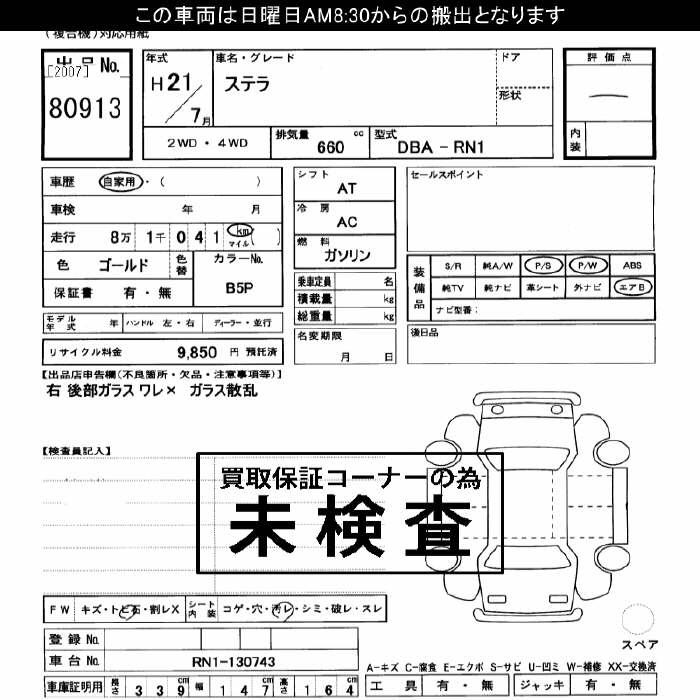 この車両は日曜日AM8:30からの搬出となります
(複合機)対応用紙
出品 No. [2007]
80913
年式
H21/7月
車名・グレード
ステラ
ドア
形状
評価点
内装
2WD・4WD
排気量 660 cc
型式 DBA - RN1
車歴 自家用・( )
車検 年 月
走行 8万 1千 0 4 1 km マイル ( )
色 ゴールド
色替
カラーNo. B5P
保証書 有・無
シフト AT
冷房 AC
燃料 ガソリン
乗車定員 名
積載量 kg
総重量 kg
セールスポイント
装備品
S/R 純A/W P/S P/W ABS
純TV 純ナビ 革シート 外ナビ エアB
ナビ型番:
モデル年式 年 ハンドル 左・右 ディーラー・並行
名変期限
月 日
後日品
リサイクル料金 9,850 円 預託済
【出品店申告欄(不良箇所・欠品・注意事項等)】
右 後部ガラス ワレ× ガラス散乱
【検査員記入】
買取保証コーナーの為
未検査
FW キズ・トビ石・割レX シート内装 コゲ・穴・汚レ・シミ・破レ・スレ
登録 No.
車台 No. RN1-130743
車庫証明用 長さ 339cm 幅 147cm 高さ 164cm
スペア
A-キズ C-腐食 E-エクボ S-サビ U-凹ミ W-補修 XX-交換済
工具 有・無 ジャッキ 有・無